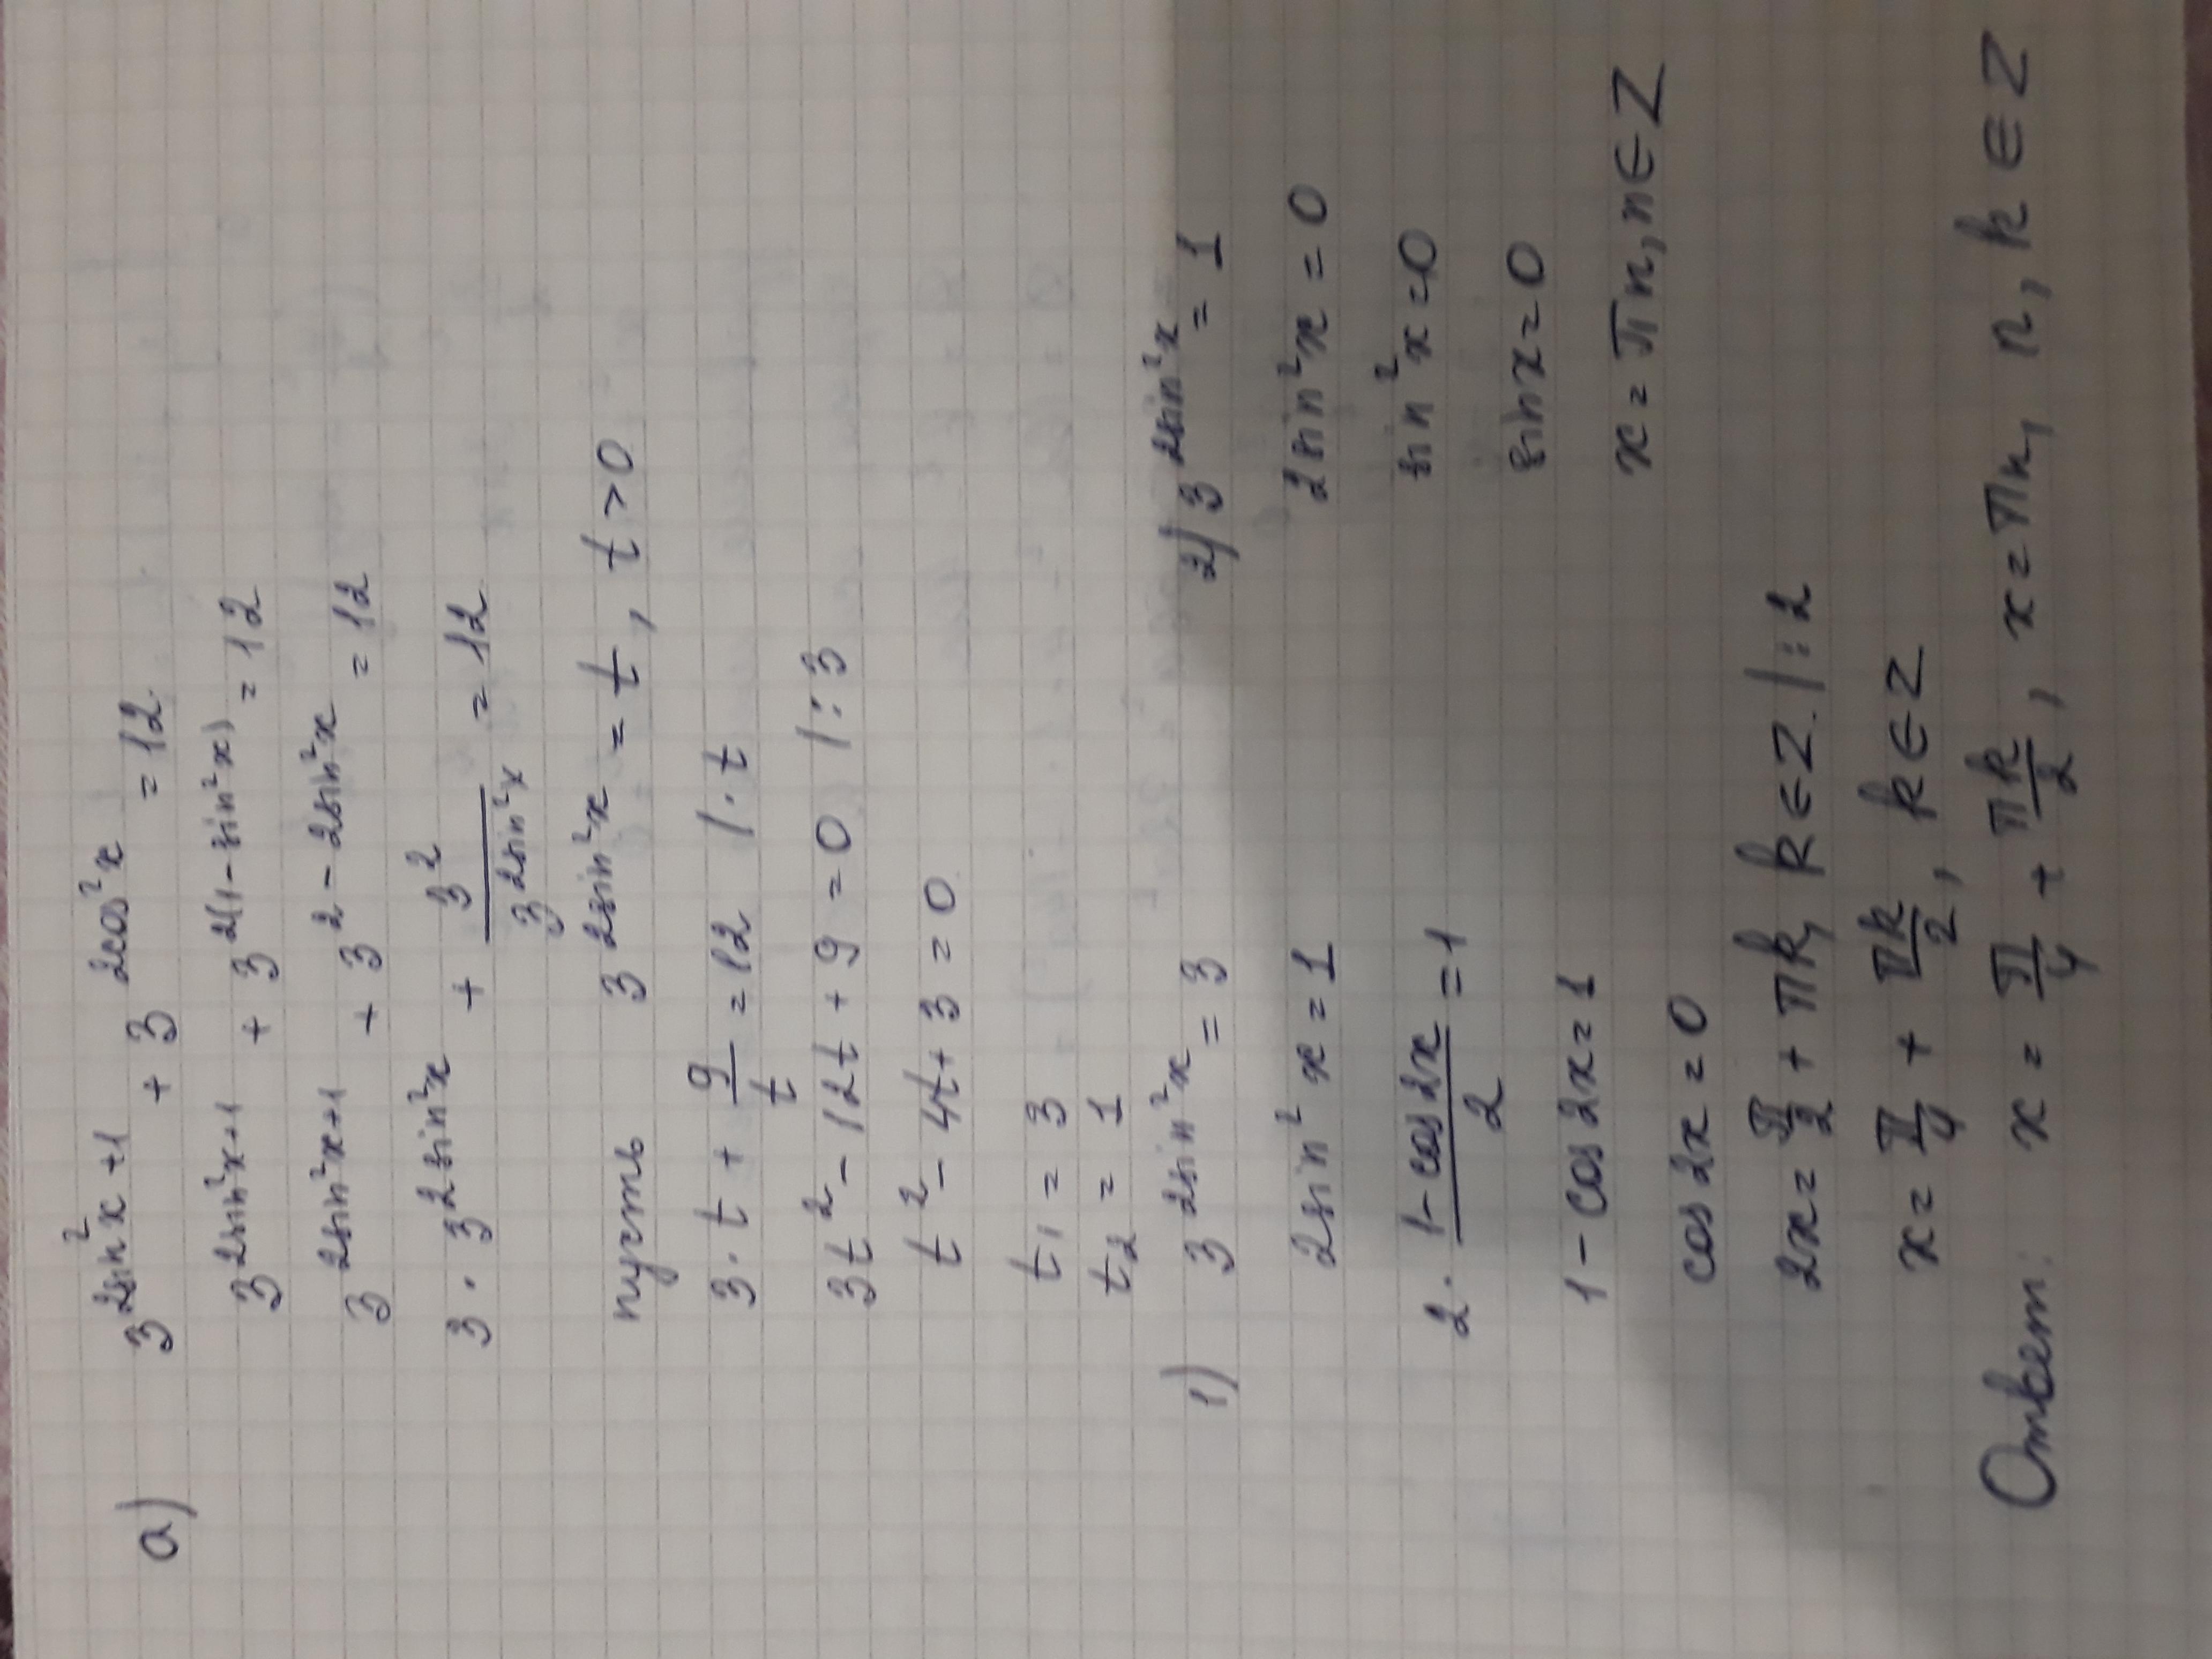 а) 3^(2sin²x+1) + 3^(2cos²x) = 12
3^(2sin²x+1) + 3^(2(1-sin²x)) = 12
3^(2sin²x+1) + 3^(2-2sin²x) = 12
3 · 3^(2sin²x) + 3²/3^(2sin²x) = 12
пусть 3^(2sin²x) = t, t>0
3·t + 9/t = 12 | · t
3t² - 12t + 9 = 0 | : 3
t² - 4t + 3 = 0
t₁ = 3
t₂ = 1
1) 3^(2sin²x) = 3
2sin²x = 1
2 · (1-cos2x)/2 = 1
1 - cos2x = 1
cos2x = 0
2x = π/2 + πk, k∈Z |:2
x = π/4 + πk/2, k∈Z
2) 3^(2sin²x) = 1
2sin²x = 0
sin²x = 0
sinx = 0
x = πn, n∈Z
Ответ: x = π/4 + πk/2, x = πn, n, k ∈ Z